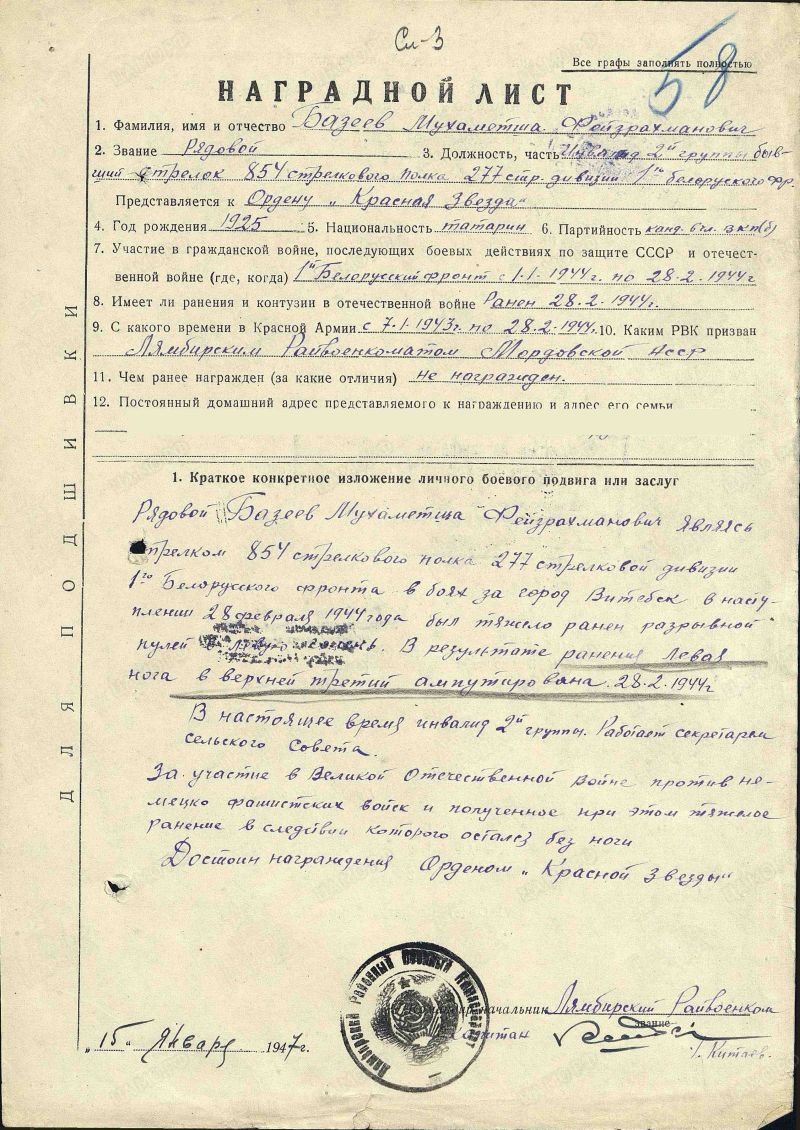 Сл-3
Все графы заполнять полностью
58
НАГРАДНОЙ ЛИСТ
1. Фамилия, имя и отчество Базеев Мухаметша Фейзрахманович
2. Звание Рядовой 3. Должность, часть Инвалид 2й группы быв-
ший стрелок 854 стрелкового полка 277 стр. дивизии 1го белоруского фр.
Представляется к Ордену „Красная Звезда"
4. Год рождения 1925 5. Национальность татарин 6. Партийность канд. в чл. вкп(б)
7. Участие в гражданской войне, последующих боевых действиях по защите СССР и отечест-
венной войне (где, когда) 1й Белорусский фронт с 1-1-1944г. по 28-2-1944г
8. Имеет ли ранения и контузии в отечественной войне Ранен 28.2-1944г.
9. С какого времени в Красной Армии с 7.1-1943г. по 28.2-1944г. 10. Каким РВК призван
Лямбирским Райвоенкоматом Мордовской АССР
11. Чем ранее награжден (за какие отличия) не награжден.
12. Постоянный домашний адрес представляемого к награждению и адрес его семьи
1. Краткое конкретное изложение личного боевого подвига или заслуг
Рядовой Базеев Мухаметша Фейзрахманович являясь
стрелком 854 стрелкового полка 277 стрелковой дивизии
1го Белорусского фронта в боях за город Витебск в насту-
плении 28 февраля 1944 года был тяжело ранен разрывной
пулей в левую . В результате ранения левая
нога в верхней третий ампутирована 28.2-1944г
В настоящее время инвалид 2й группы. Работает секретарем
сельского Совета.
За участие в Великой Отечественной войне против не-
мецко фашистских войск и полученное при этом тяжелое
ранение в следствии которого остался без ноги
Достоин награждения Орденом „Красной Звезды"
начальник Лямбирский Райвоенком
Капитан звание
Китаев.
„15" Января 1947г.
ДЛЯ ПОДШИВКИ